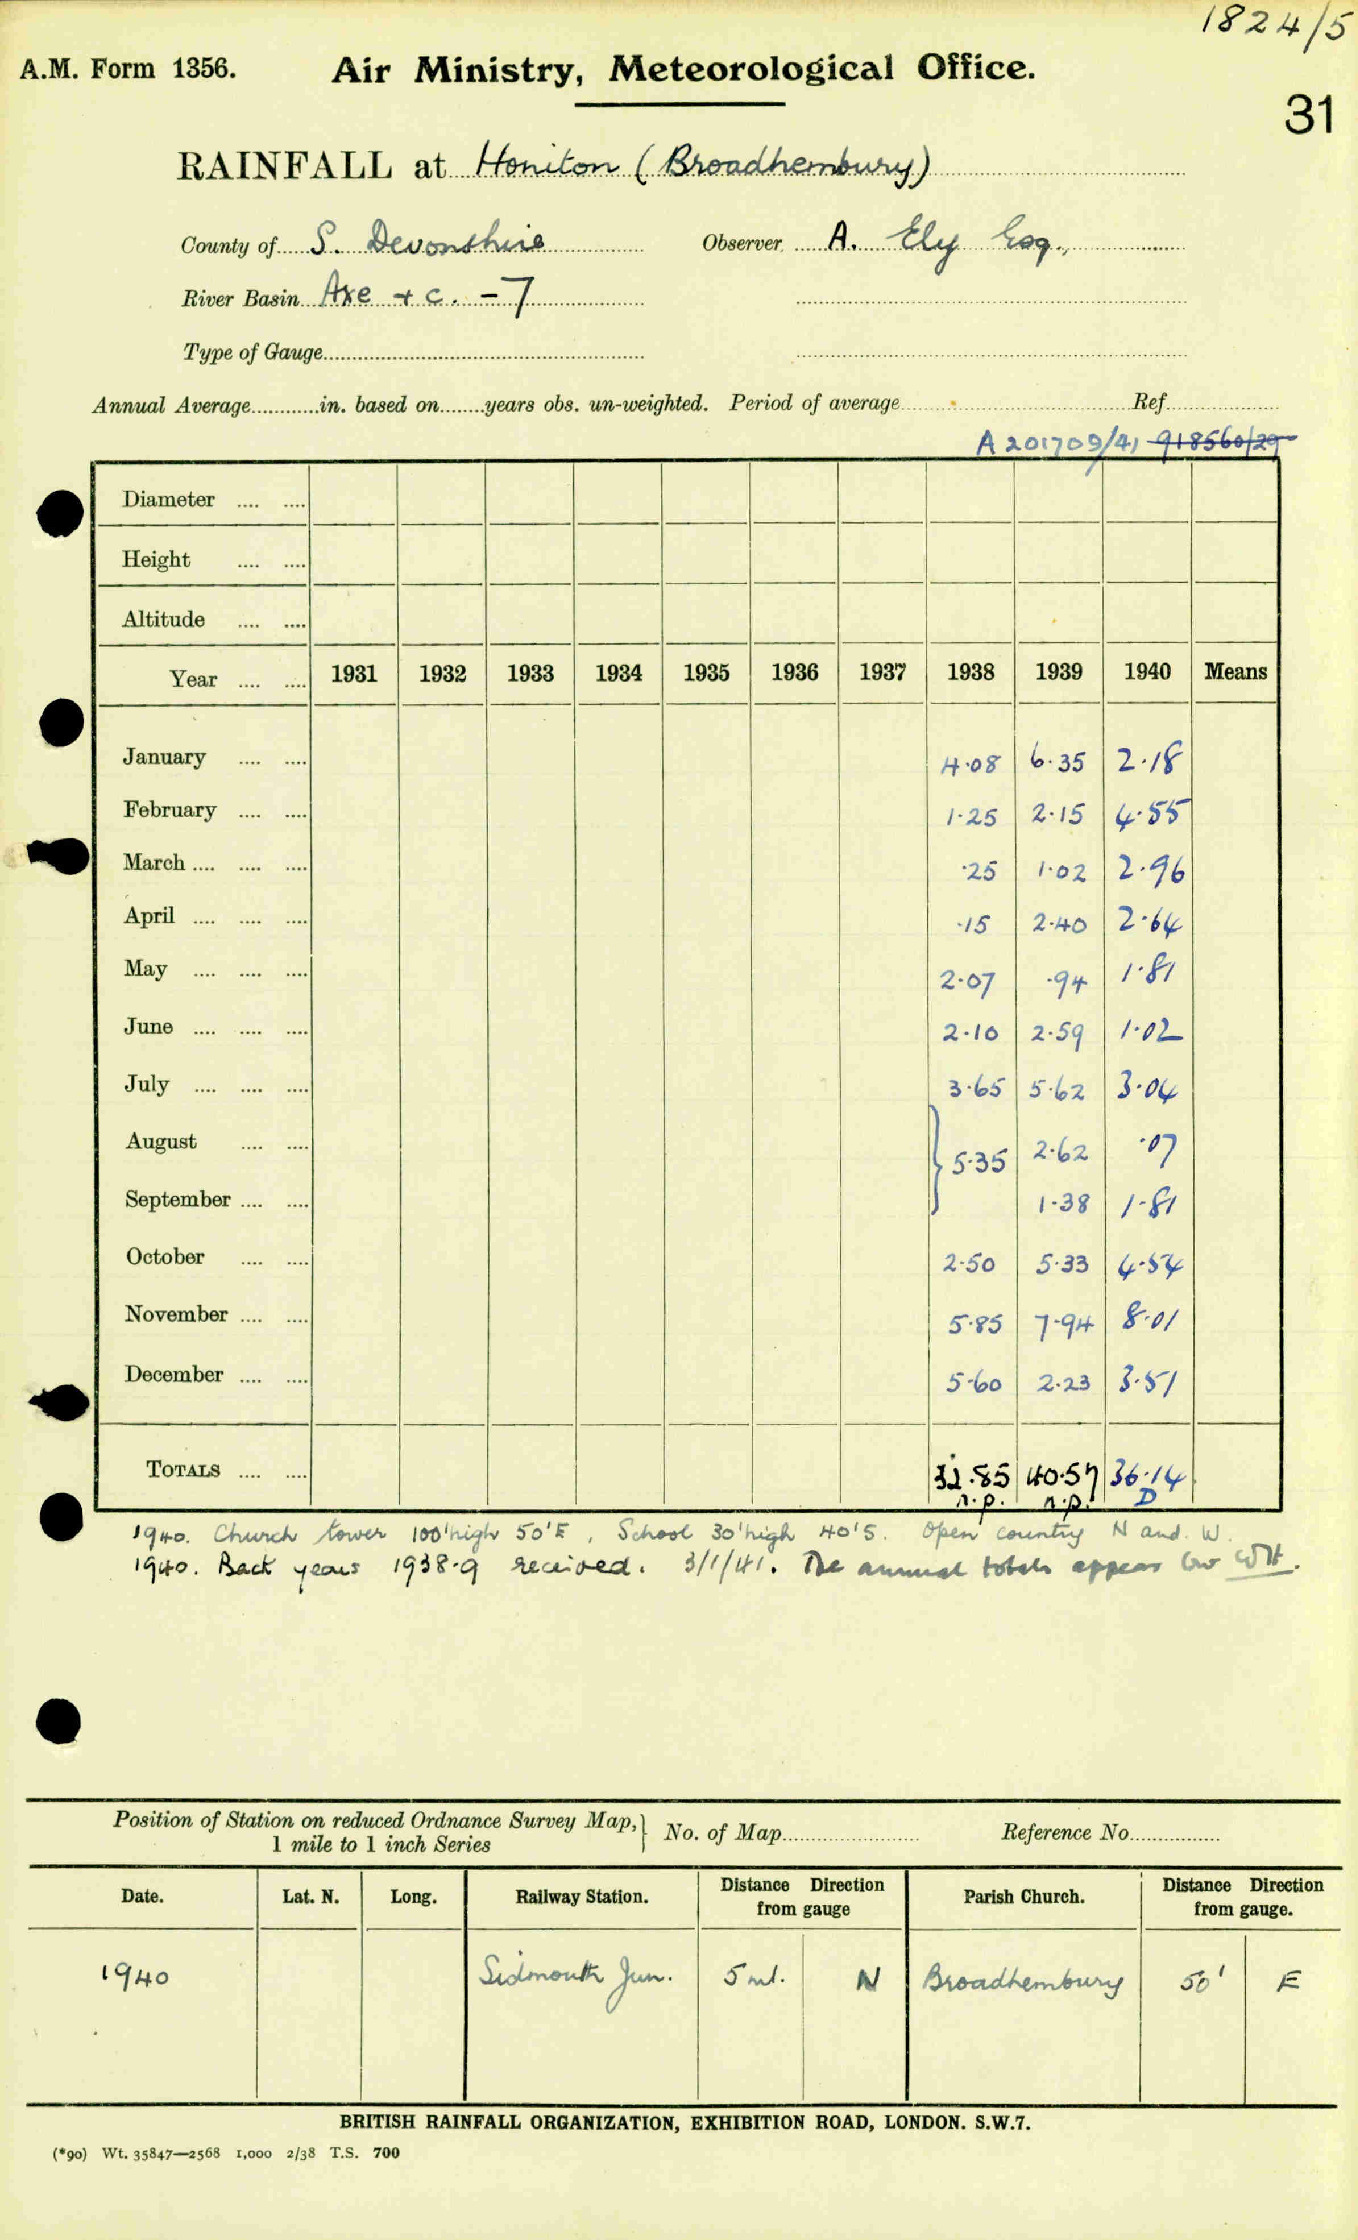 1824/5
A.M. Form 1356. Air Ministry, Meteorological Office.
31
RAINFALL at Honiton (Broadhembury)
County of S. Devonshire Observer A. Ely Esq.,
River Basin Axe + c. - 7
Type of Gauge
Annual Average in. based on years obs. un-weighted. Period of average Ref.
A 201709/41 918560/29
Diameter
Height
Altitude
Year 1931 1932 1933 1934 1935 1936 1937 1938 1939 1940 Means
January 4·08 6·35 2·18
February 1·25 2·15 4·55
March ·25 1·02 2·96
April ·15 2·40 2·64
May 2·07 ·94 1·81
June 2·10 2·59 1·02
July 3·65 5·62 3·04
August } 5·35 2·62 ·07
September 1·38 1·81
October 2·50 5·33 4·54
November 5·85 7·94 8·01
December 5·60 2·23 3·51
TOTALS 32.85 40.57 36.14
n.p. n.p. D
1940. Church tower 100' high 50'E, School 30' high 40'S. Open country N and W.
1940. Back years 1938-9 received. 3/1/41. The annual totals appear low
Position of Station on reduced Ordnance Survey Map, 1 mile to 1 inch Series } No. of Map Reference No.
Date. Lat. N. Long. Railway Station. Distance Direction from gauge Parish Church. Distance Direction from gauge.
1940 Sidmouth Jun. 5 ml. N Broadhembury 50' E
BRITISH RAINFALL ORGANIZATION, EXHIBITION ROAD, LONDON. S.W.7.
(*90) Wt. 35847—2568 1,000 2/38 T.S. 700